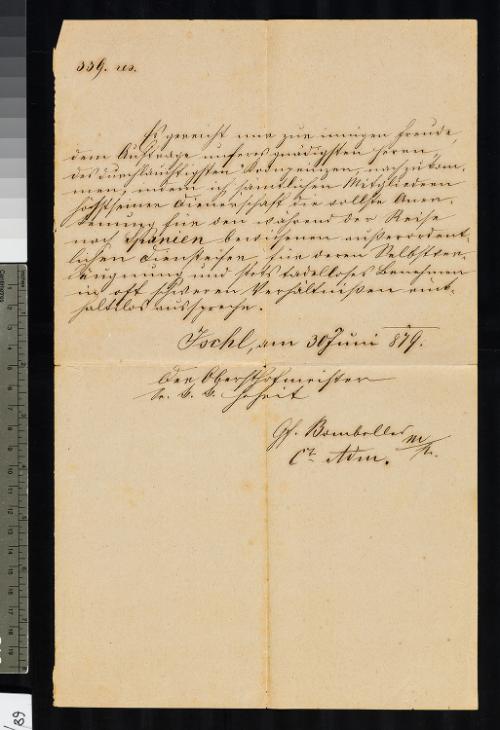 339. res.
Es gereicht mir zur innigen Freude,
dem Auftrage unseres gnädigsten Herrn,
des durchlauchtigsten Kronprinzen, nachzukom-
men, indem ich sämtlichen Mitgliedern
höchstseiner Dienerschaft die vollste Aner-
kennung für den während der Reise
nach Spanien bewiesenen außerordent-
lichen Diensteifer, für deren Selbstver-
läugnung und stets tadelloses Benehmen
in oft schweren Verhältnißen rück-
haltslos ausspreche.
Ischl, am 30 Juni 879.
Der Obersthofmeister
Sr. k. k. Hoheit
Gf. Bombelles m/p.
Ct. Adm.
89